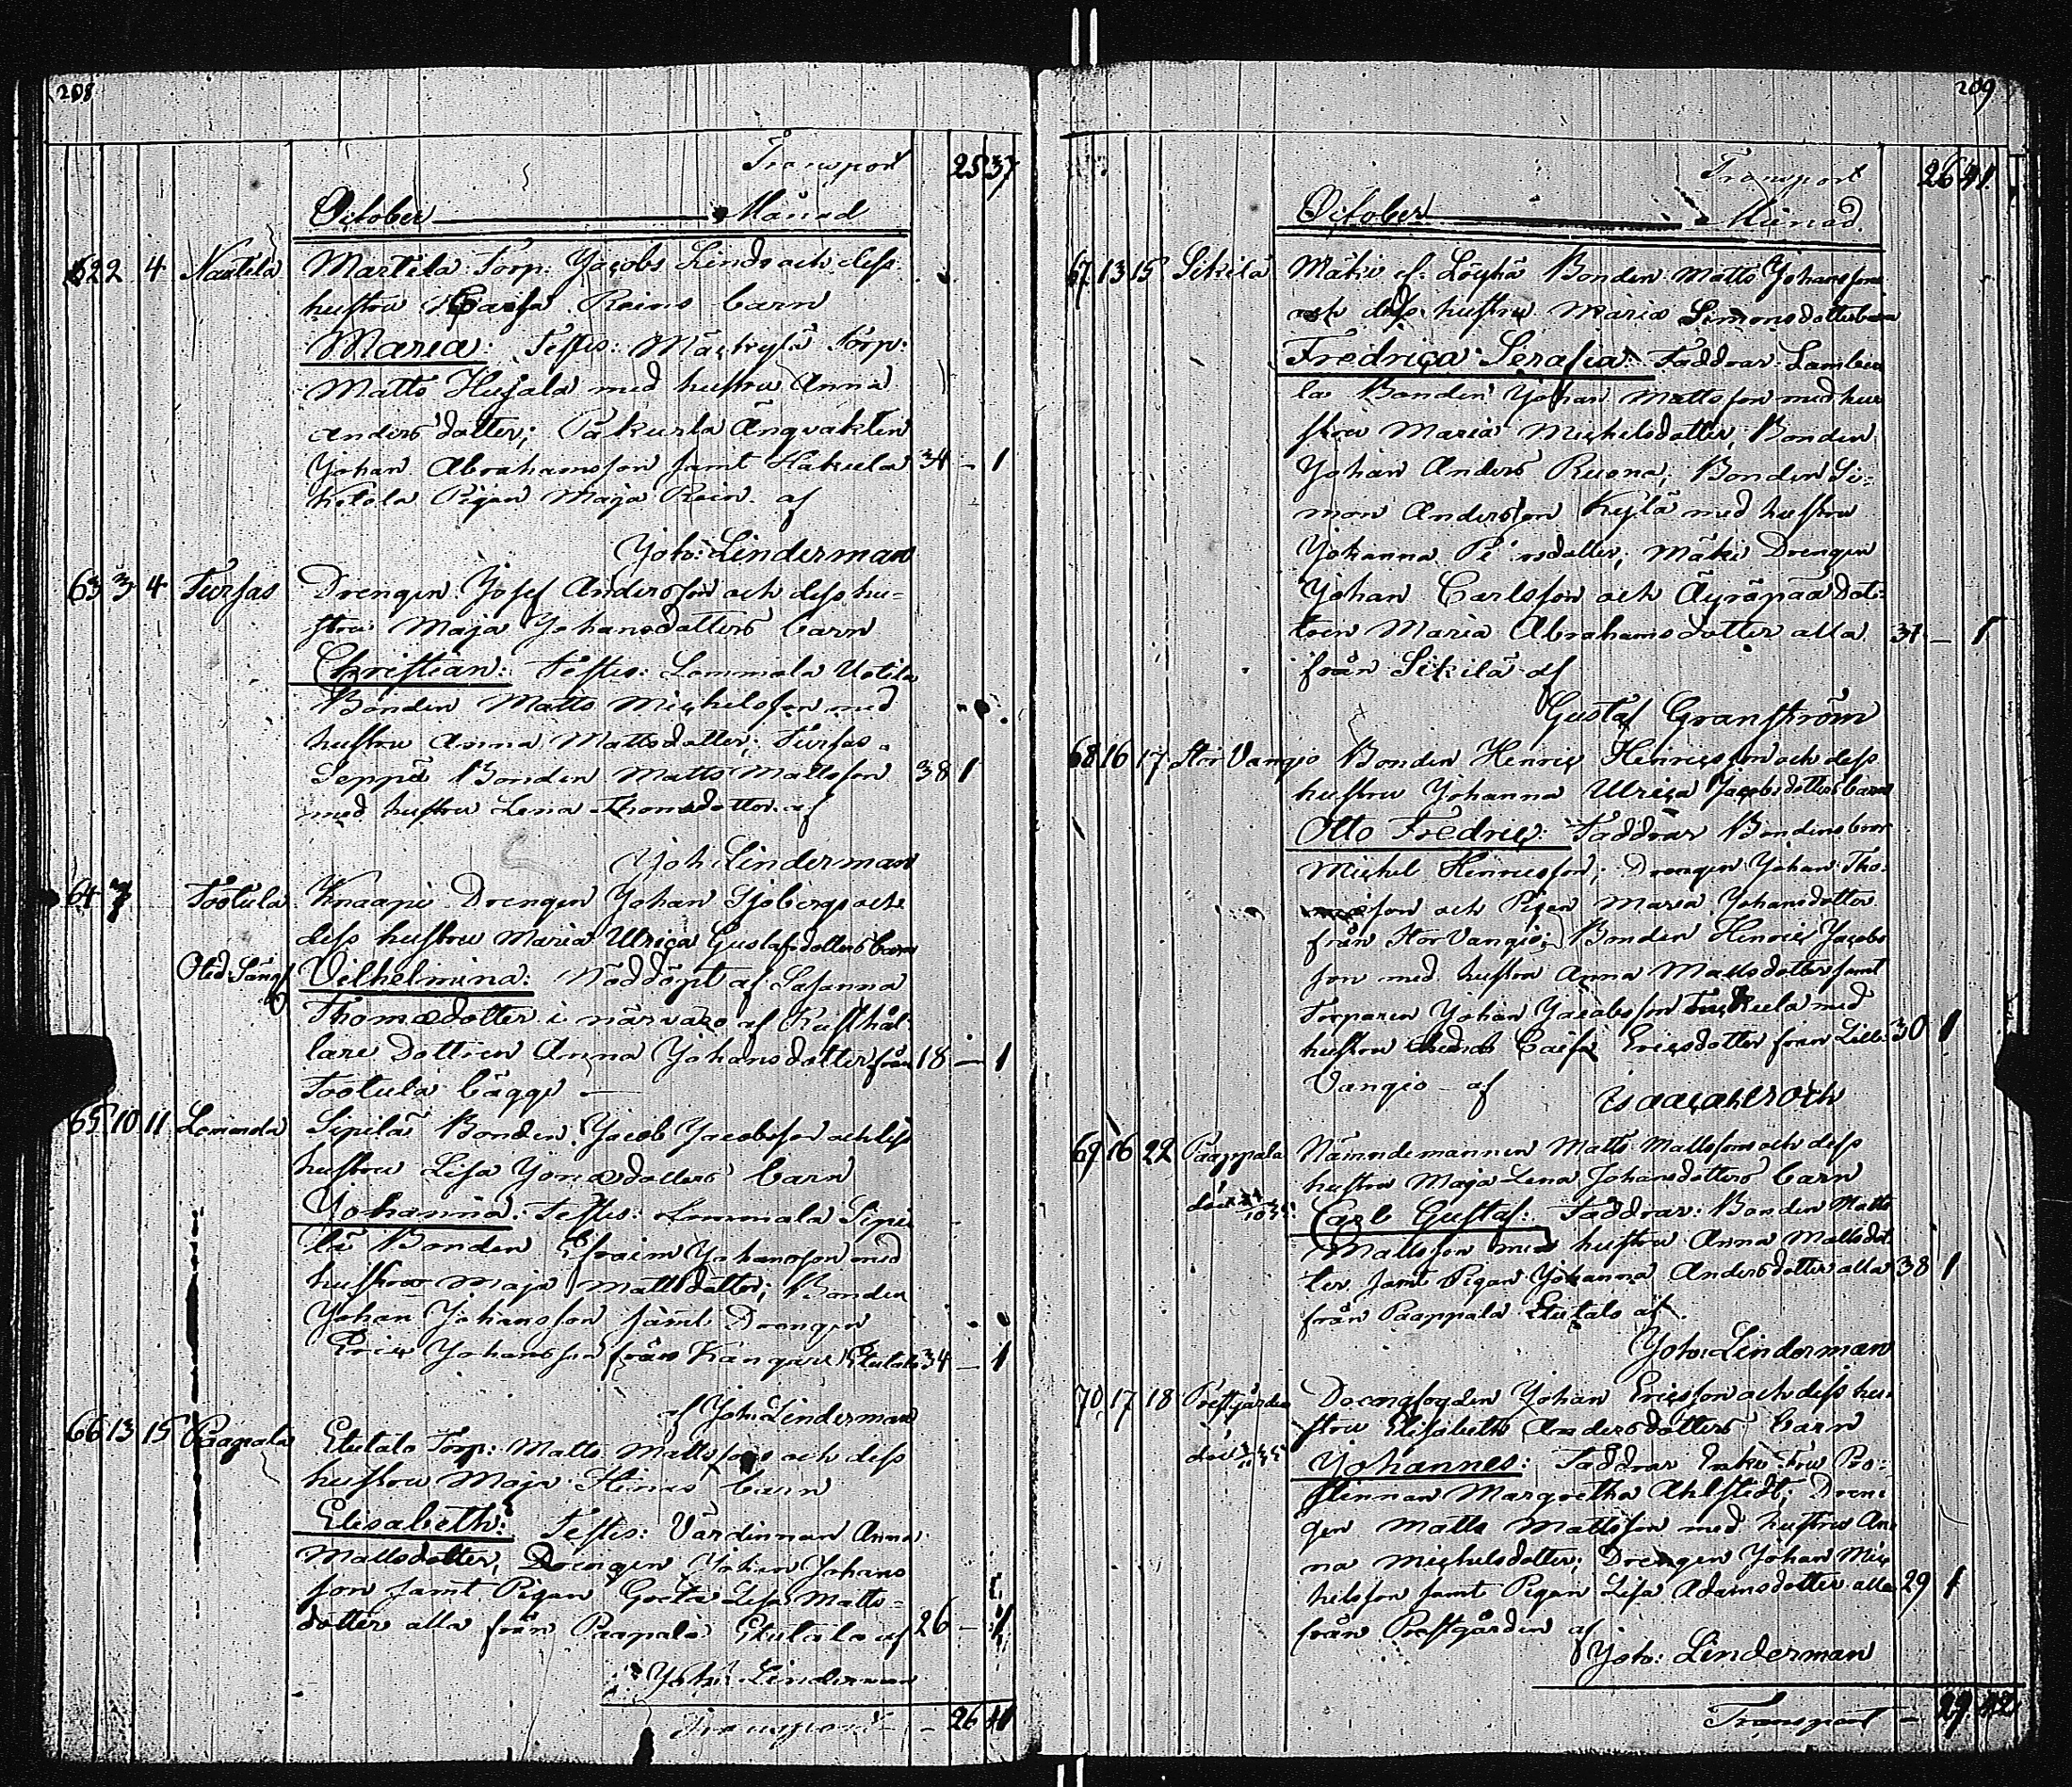 208
Transport 25 37
October Månad
62 2 4 Nautela Martila Torp: Jacobs Linds och dess
hustru Caisa Reins barn
Maria: Testes: Mäckylä Torp:
Matts Hujala med hustru Anna
Anders dotter; Pakurla Ängvakten
Johan Abrahamsson samt Hakula 34 – 1
Ketola Pigan Maja Rein af
Joh: Linderman
63 3 4 Tursas Drengen Josef Andersson och dess hu-
stru Maja Johansdotters barn
Christian: Testes: Lammala Uotila
Bonden Matts Michelsson med
hustru Anna Mattsdotter; Tursas
Seppä Bonden Matts Mattsson 38 1
med hustru Lena Thomadotter af
Joh Linderman
64 7 Tootula Knaapi Drengen Johan Sjöbergs och
dess hustru Maria Ulrica Gustafsdotters barn
Vilhelmina: Nöddöpt af Susanna
Thomædotter i närvaro af Rusthål-
lare Dottren Anna Johansdotter från 18 – 1
Tootula bägge –
65 10 11 Lammala Sipilä Bonden Jacob Jacobsson och dess
hustru Lisa Jonædotters barn
Johanna: Testes: Lammala Sipi
lä Bonden Efraim Johansson med
hustru Maja Mattsdotter; Bonden
Johan Johansson samt Drengen
Eric Johansson från Kangare Etutalo 34 – 1
af Joh: Linderman
66 13 15 Paapala Etutalo Torp: Matts Mattssons och dess
hustru Maja Hinas barn
Elisabeth: Testes: Värdinnan Anna
Mattsdotter, Drengen Johan Johans
son samt Pigan Greta Lisa Matts-
dotter alla från Paapala Etutalo af 26 – 1
Joh: Linderman
Transport – 26 41
209
Transport 26 41
October Månad.
67 13 15 Sikilä Mäki el: Löyhä Bonden Matts Johanssons
och dess hustru Maria Simonsdotters barn
Fredrica Serafia: Faddrar: Lambu
la Bonden Johan Mattsson med hu
stru Maria Michelsdotter, Bonden
Johan Anders Ruona; Bonden Si-
mon Andersson Kylä med hustru
Johanna dotter; Mäki Drengen
Johan Carlsson och Äyräpää dot-
tren Maria Abrahamsdotter alla 31 – 1
från Sikilä af
Gustaf Granström
68 16 17 Stor Vangio Bonden Henric Henricsson och dess
hustru Johanna Ulrica Jacobsdotters barn
Otto Fredric: Faddrar Bondens bror
Michel Henricsson; Drengen Johan Tho-
masson och Pigan Maria Johansdotter
från Stor Vangio; Bonden Henric Jacobs
son med hustru Anna Mattsdotter samt
Torparen Johan Jacobsson med
hustru Caisa Ericsdotter från Lill- 30 1
Vangio – af
Isaac Ahlroth
69 16 22 Paappala Nämndemannen Matts Mattsson och dess
hustru Maja Lena Johansdotters barn
Carl Gustaf: Faddrar: Bonden Matts
Mattsson med hustru Anna Mattsdot
ter samt Pigan Johanna Andersdotter alla 38 1
från Paappala Etutalo af
Joh: Linderman
70 17 18 Prestgården Drengfogden Johan Ericsson och dess hu-
stru Elisabeth Andersdotters barn
Johannes: Faddrar Enke Fru Pro-
stinnan Margretha Ahlstedt; Dren-
gen Matts Mattsson med hustru An-
na Michelsdotter; Drengen Johan Mic
helsson samt Pigan Lisa Adamsdotter alla 29 1
från Prestgården af
Joh: Linderman
Transport – 29 42